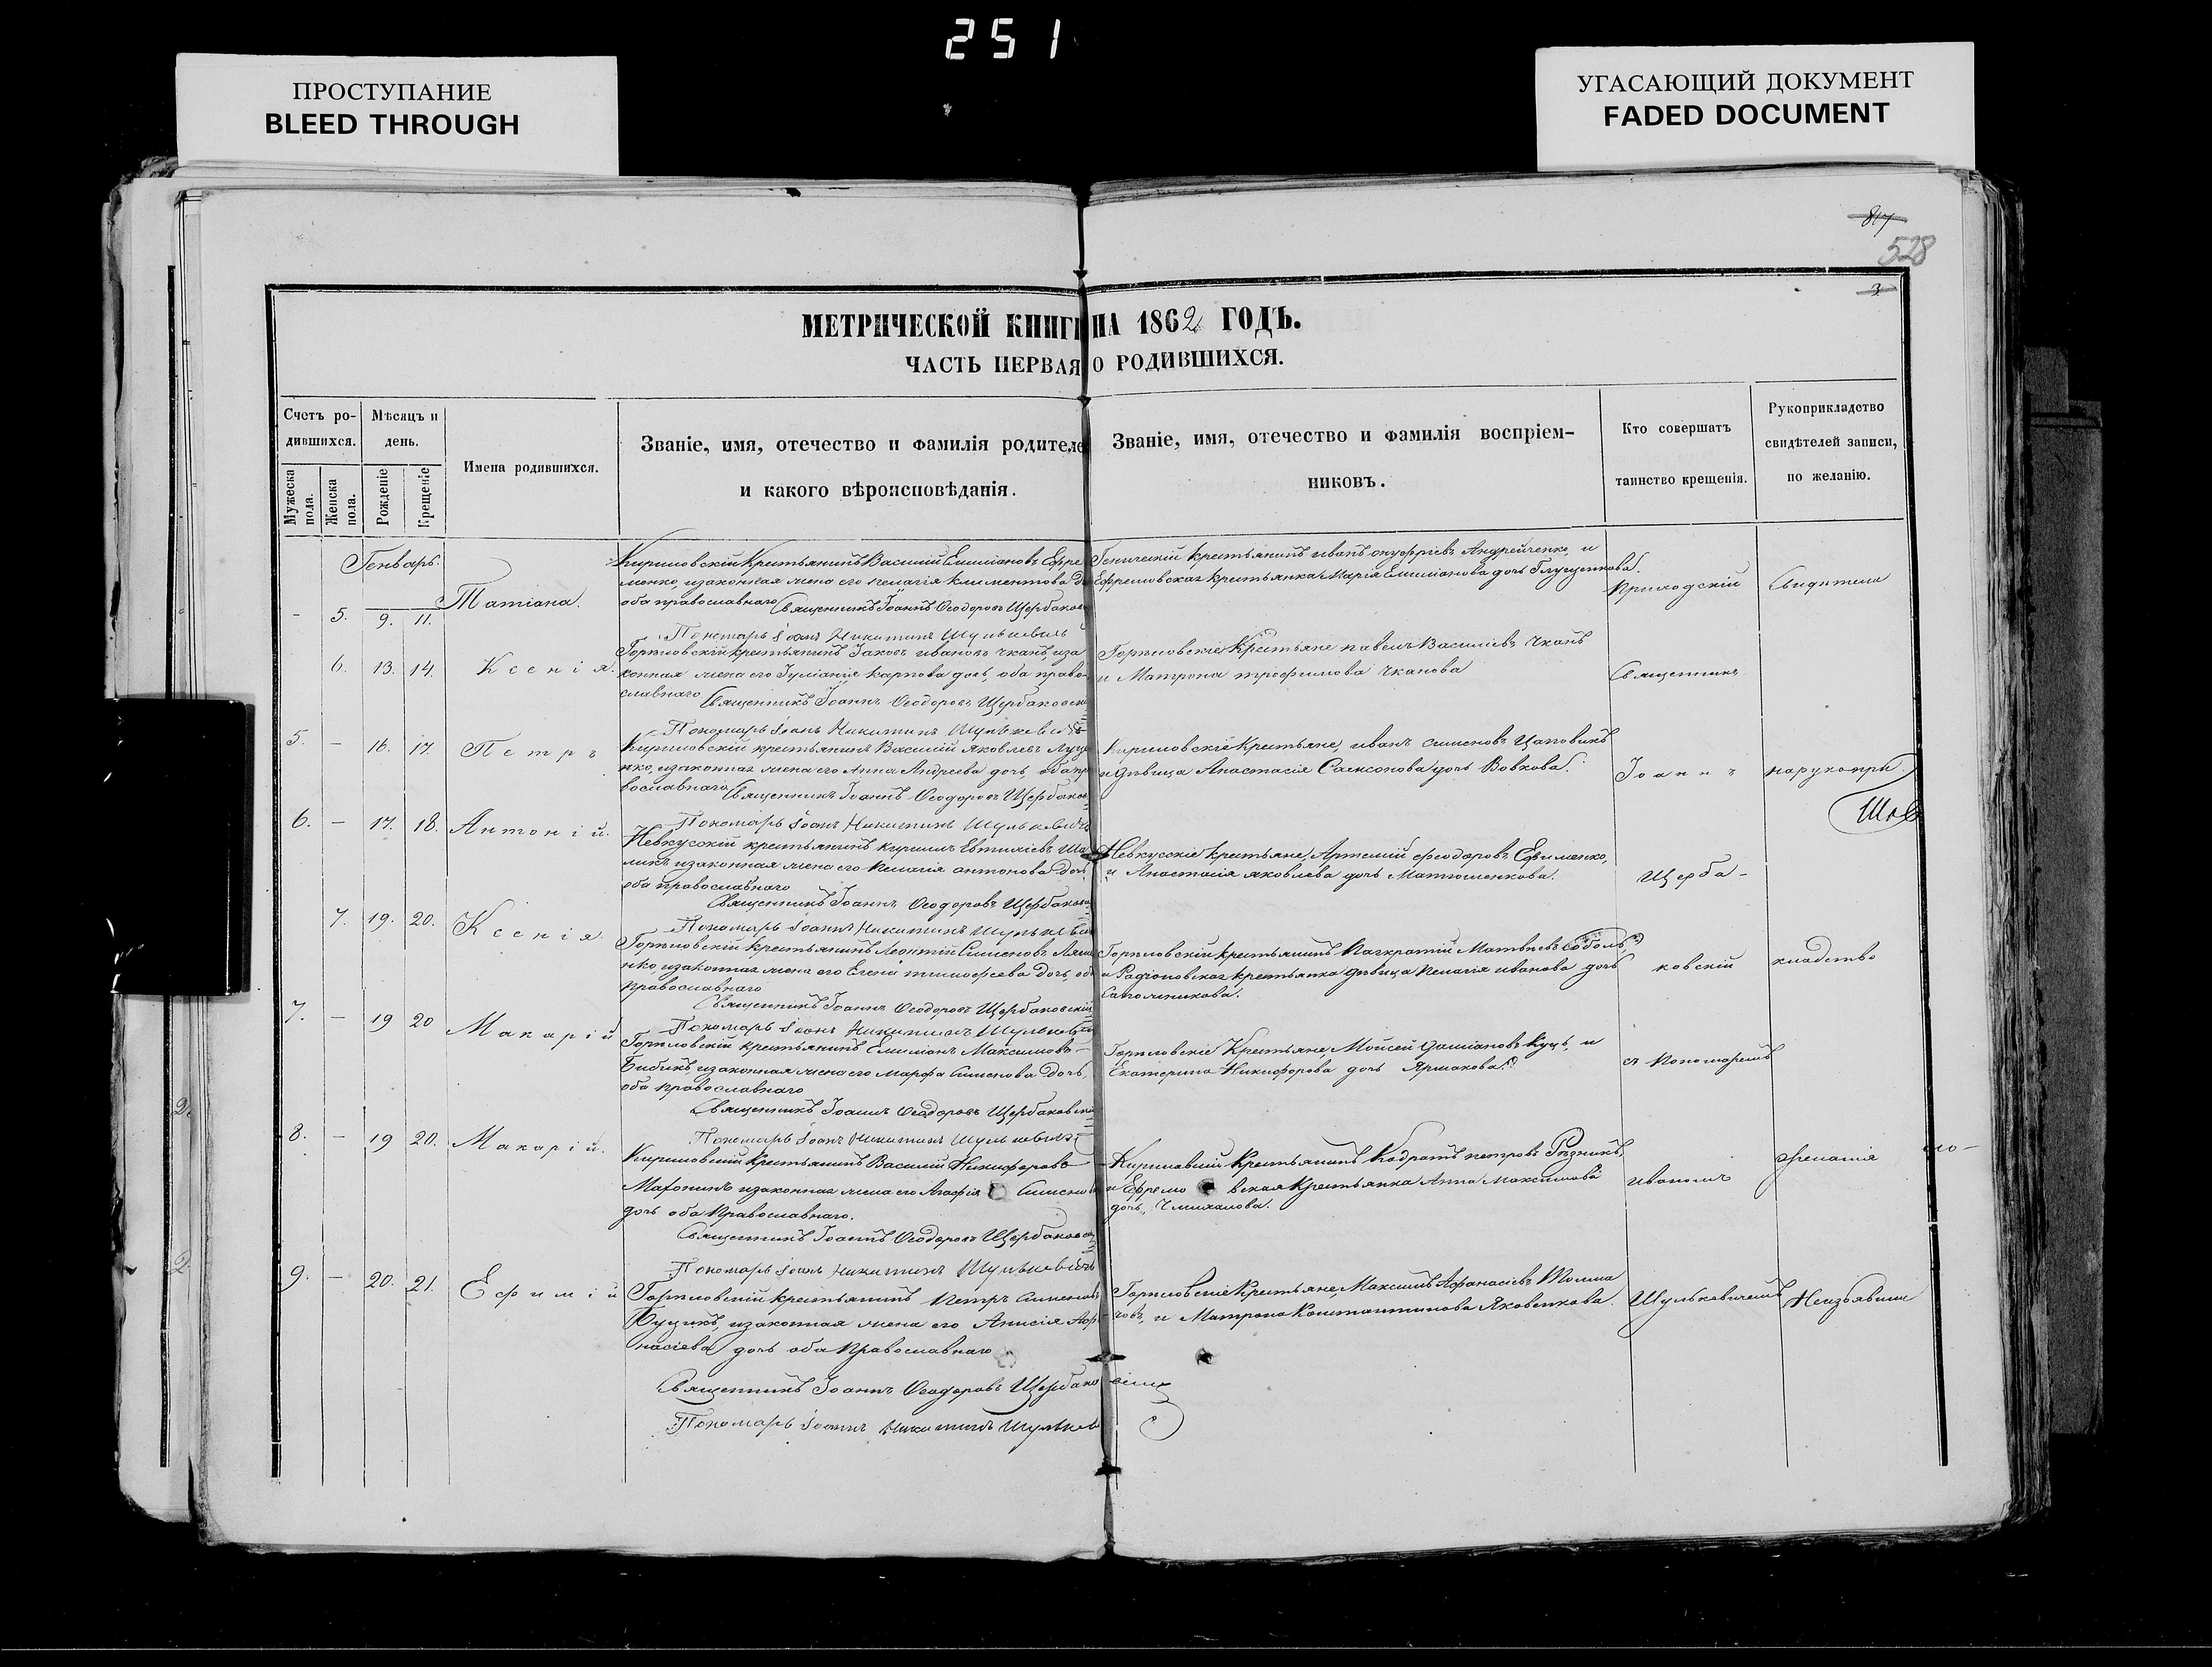 251
ПРОСТУПАНИЕ
BLEED THROUGH
УГАСАЮЩИЙ ДОКУМЕНТ
FADED DOCUMENT
817
528
3
МЕТРИЧЕСКОЙ КНИГИ НА 1862 ГОДЪ.
ЧАСТЬ ПЕРВАЯ О РОДИВШИХСЯ.
Счетъ ро-
дившихся.
Мѣсяцъ и
день.
Мужеска
пола.
Женска
пола.
Рожденіе
Крещеніе
Имена родившихся.
Званіе, имя, отечество и фамилія родителе
и какого вѣроисповѣданія.
Званіе, имя, отечество и фамилія воспріем-
никовъ.
Кто совершатъ
таинство крещенія.
Рукоприкладство
свидѣтелей записи,
по желанію.
Генварь.
- 5. 9. 11. Татіана.
Кириловскій Крестьянинъ Василій Емиліановъ Ефре
менко, и законная жена его Пелагія Климентова до
оба православнаго Священникъ Іоаннъ Ѳеодоровъ Щербаков
Пономарь Іоанъ Никитинъ Шулькевичъ
Геническій крестьянинъ Иванъ Онуфріевъ Андрейченко, и
Ефремовская крестьянка Марія Емиліанова дочь Глущенкова.
6. 13. 14. Ксенія.
Горпловскій крестьянинъ Іаковъ Ивановъ Чканъ, и за
конная жена его Іуліанія Карпова дочь, оба право
славнаго Священникъ Іоаннъ Ѳеодоровъ Щербаковскі
Пономарь Іоанъ Никитинъ Шулькевичъ
Горпловскіе Крестьяне Павелъ Василіевъ Чканъ
и Матрона Трофимова Чканова
5. - 16. 17. Петръ
Кириловскій крестьянинъ Василій Яковлевъ Луце
нко, и законная жена его Анна Андреева дочь, оба пра
вославнаго Священникъ Іоаннъ Ѳеодоровъ Щербаков
Пономарь Іоанъ Никитинъ Шулькевичъ
Кириловскіе Крестьяне, Иванъ Симеоновъ Цаповикъ
и дѣвица Анастасія Саксонова дочь Вовкова.
6. - 17. 18. Антоній.
Невкусскій крестьянинъ Кирилъ Евтихіевъ Ша
ликъ и законная жена его Пелагія Антонова дочь
оба православнаго
Священникъ Іоаннъ Ѳеодоровъ Щербаков
Пономарь Іоаннъ Никитинъ Шулькевич
Невкусскіе крестьяне, Артемій Феодоровъ Ефименко,
и Анастасія Яковлева дочь Матюшенкова.
7. 19. 20. Ксенія.
Горпловскій крестьянинъ Леонтій Симеоновъ Ляше
нко, и законная жена его Елена Тимофеева дочь, оба
православнаго
Священникъ Іоаннъ Ѳеодоровъ Щербаковскій
Пономарь Іоанъ Никитинъ Шулькевич
Горпловскій крестьянинъ Панкратій Матвѣевъ Соболь,
и Радіоновская крестьянка дѣвица Пелагія Иванова дочь
Сапожникова.
7. - 19 20 Макарій
Горпловскій крестьянинъ Емиліанъ Максимовъ
Бибикъ, и законная жена его Марфа Симеонова дочь,
оба православнаго
Священникъ Іоаннъ Ѳеодоровъ Щербаковскі
Пономарь Іоанъ Никитинъ Шулькевичъ
Горпловскіе Крестьяне, Моисей Даміановъ Куцъ, и
Екатерина Никифорова дочь Ярмакова.
8. - 19 20. Макарій.
Кириловскій крестьянинъ Василій Никифоровъ
Махонинъ и законная жена его Агафія Симеонов
дочь оба Православнаго.
Священникъ Іоаннъ Ѳеодоровъ Щербаковск
Пономарь Іоанъ Никитинъ Шулькевичъ
Кириловскій Крестьянинъ Кодратъ Петровъ Рѣзникъ,
и Ефремовская Крестьянка Анна Максимова
дочь,
9. - 20. 21. Ефимій
Горпловскій крестьянинъ Петръ Симеоновъ
Буцикъ, и законная жена его Анисія Аѳа
насіева дочь оба Православнаго
Священникъ Іоаннъ Ѳеодоровъ Щербаковскій
Пономарь Іоаннъ Никитинъ Шулькев
Горпловскіе Крестьяне, Максимъ Афанасіевъ Толма
човъ, и Матрона Константинова Яковенкова.
Приходскій
Священникъ
Іоаннъ
Щерба-
ковскій
съ Пономаремъ
Иваномъ
Шулькевичемъ
Свидѣтели
нарукопри
кладство
желанія
Неизъявили